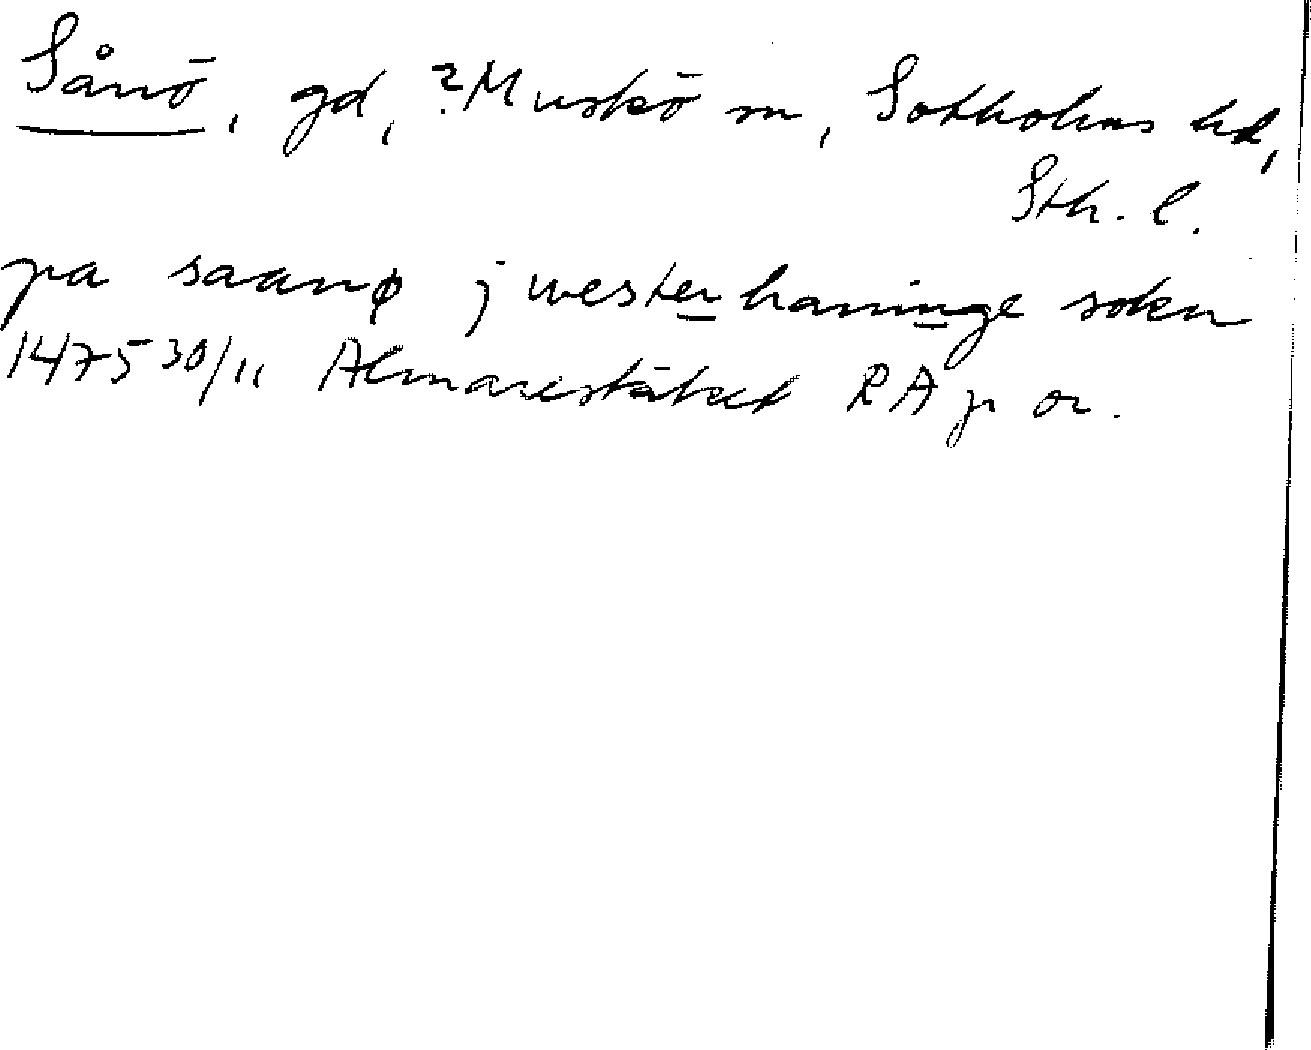 Sånö, gd, ?Muskö sn, Sotholms hd,
Sth. l.
pa saanø j westerhaninge sokn
1475 30/11 Almarestäket RA p or.